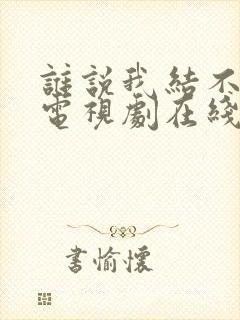 誰說我結不
電視劇在綫
書愉懷